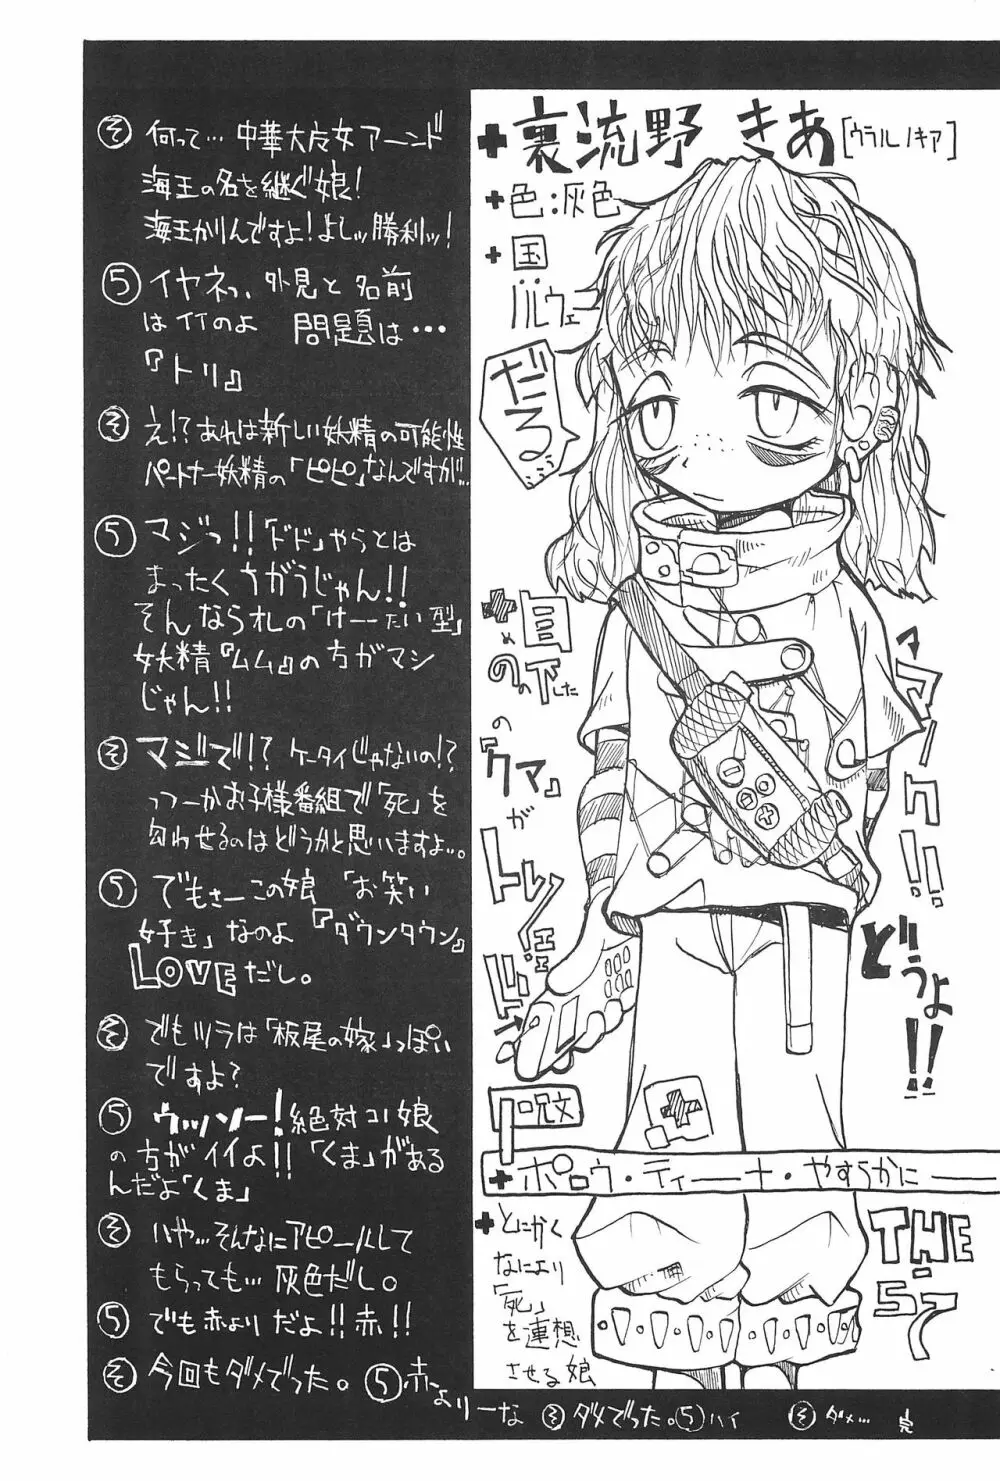 ✚裏流野 きあ[ウラルノキア]
✚色:灰色
✚国
ノルウェー
だる…
✚目の下の『クマ』がトレンド
マーク!!
どうよ!!
呪文
✚ポロウ・ティーーナ・やすらかにーー
✚とにかく
なにより
「死」
を連想
させる娘
THE
57
そ 何って…中華大好女アーンド
海王の名を継ぐ娘!
海王かりんですよ!よしッ勝利ッ!
5 イヤネっ、外見と名前
はイイのよ 問題は…
『トリ』
そ え!?あれは新しい妖精の可能性
パートナー妖精の「ピピ」なんですが…
5 マジっ!!「ドド」やらとは
まったくちがうじゃん!!
そんならオレの「けーたい型」
妖精『ムム』の方がマシ
じゃん!!
そ マジで!?ケータイじゃないの!?
っつーかお子様番組で「死」を
匂わせるのはどうかと思いますよ…。
5 でもさーこの娘「お笑い
好き」なのよ『ダウンタウン』
LOVEだし。
そ でもツラは「板尾の嫁」っぽい
ですよ?
5 ウッソー!絶対コノ娘
の方がイイよ!!「くま」がある
んだよ「くま」
そ いや…そんなにアピールして
もらっても…灰色だし。
5 でも赤よりだよ!!赤!!
そ 今回もダメでった。
5 赤よりーな
そ ダメでった。
5 ハイ
そ ダメ…
完